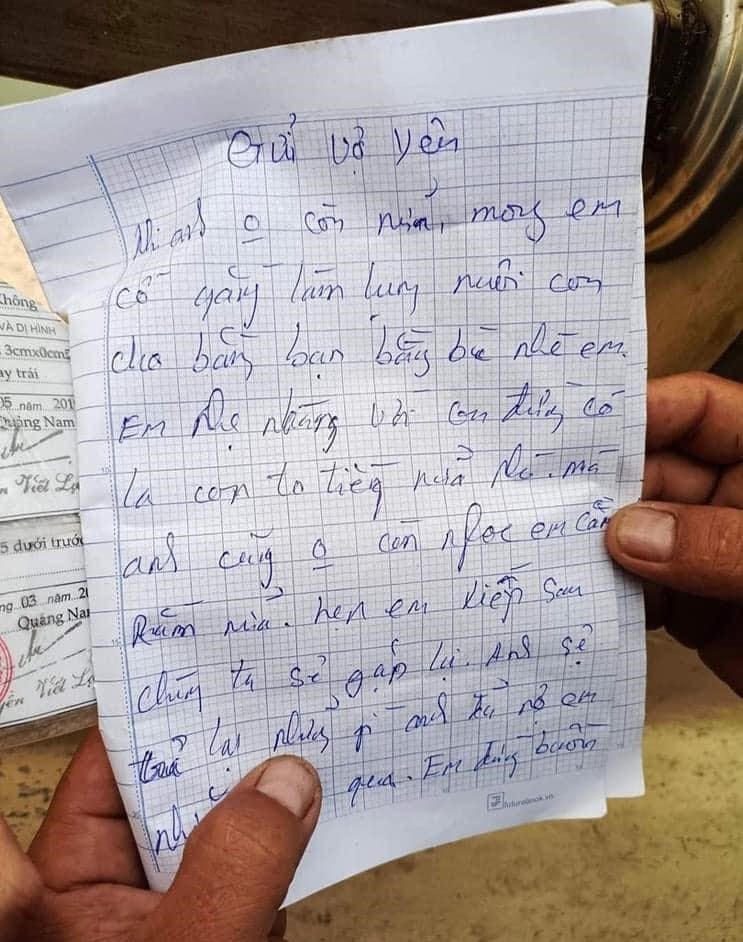 Gửi vợ yên
Khi anh o còn nữa, mong em
cố gắng làm lụng nuôi con
cho bằng bạn bằng bè nhé em.
Em nhẹ nhàng với con đừng có
la con to tiếng nữa nhé. mà
anh cũng o còn nghe em cằn
Rằn nữa. hẹn em kiếp sau
chúng ta sẽ gặp lại. Anh sẽ
trả lại những gì anh đã nợ em
qua. Em đừng buồn
futurebook.vn
Không
VÀ DỊ HÌNH
3cmx0cm5
trái
05 năm 201
Quảng Nam
Viết
5 dưới trước
03 năm 20
Quảng Na
Viết